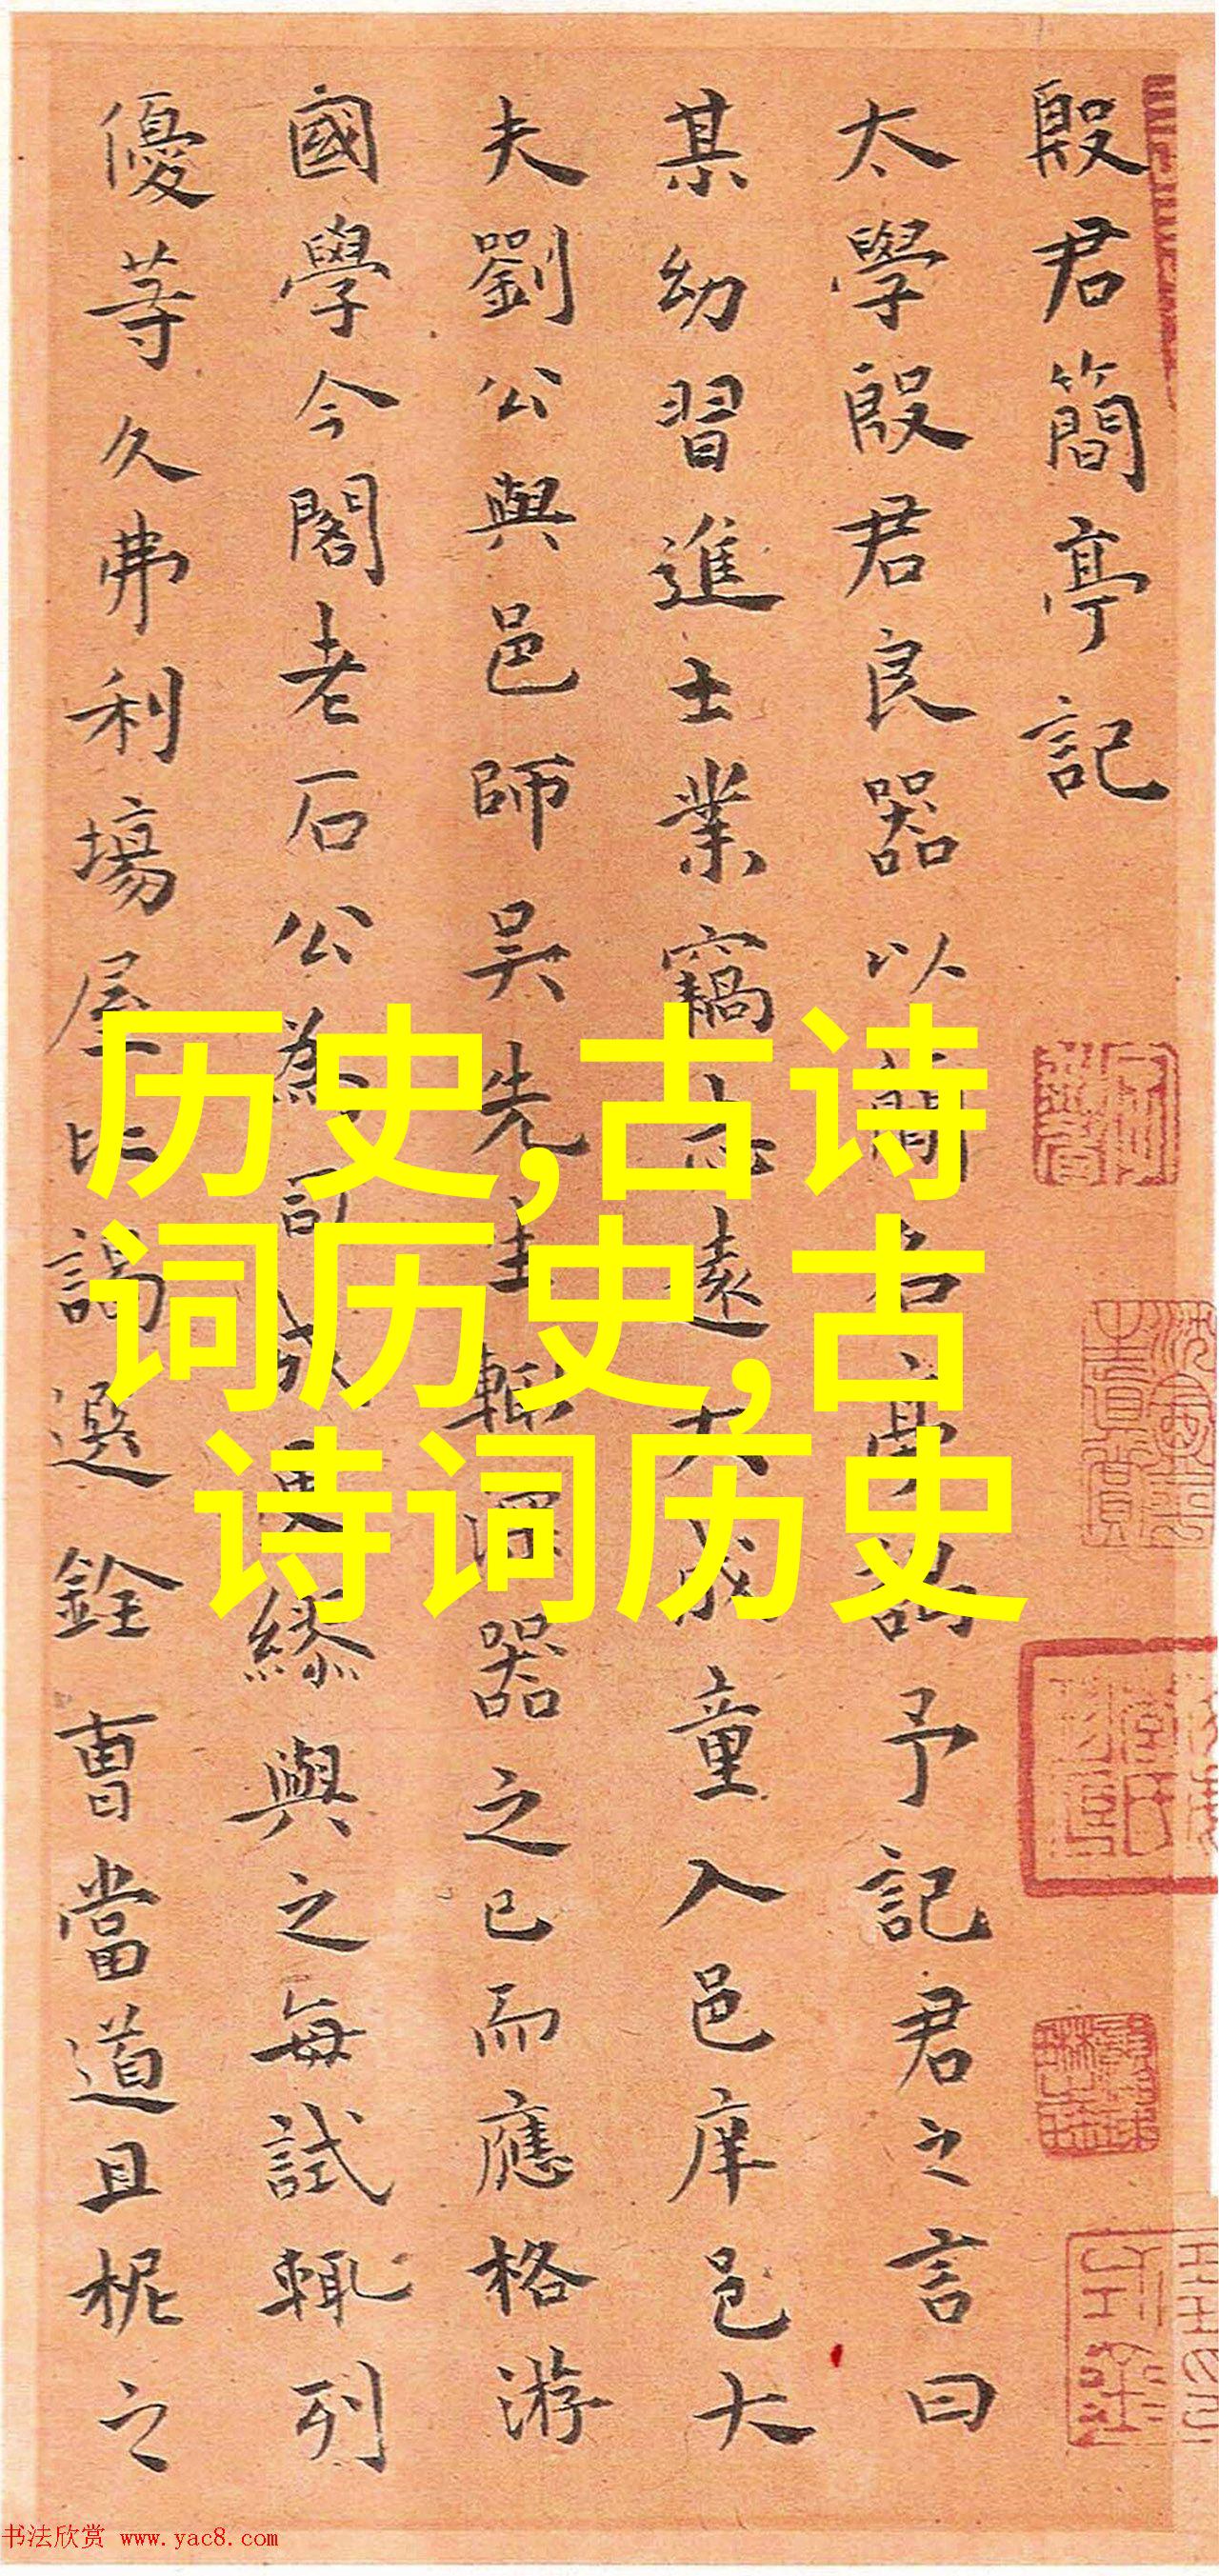 殷君簡亭記
太學殷君良器以簡名亭予記君之言曰
某幼習進士業竊志遠大成童入邑庠邑大
夫劉公與邑師吳先生輒深器之已而應格游
國學今閣老石公為司成更繆與之每試輒列
優等久弗利塲屋比謁選銓曹當道且柅之
历史,古诗
词历史,古
诗词历史
书法欣赏 www.yac8.com